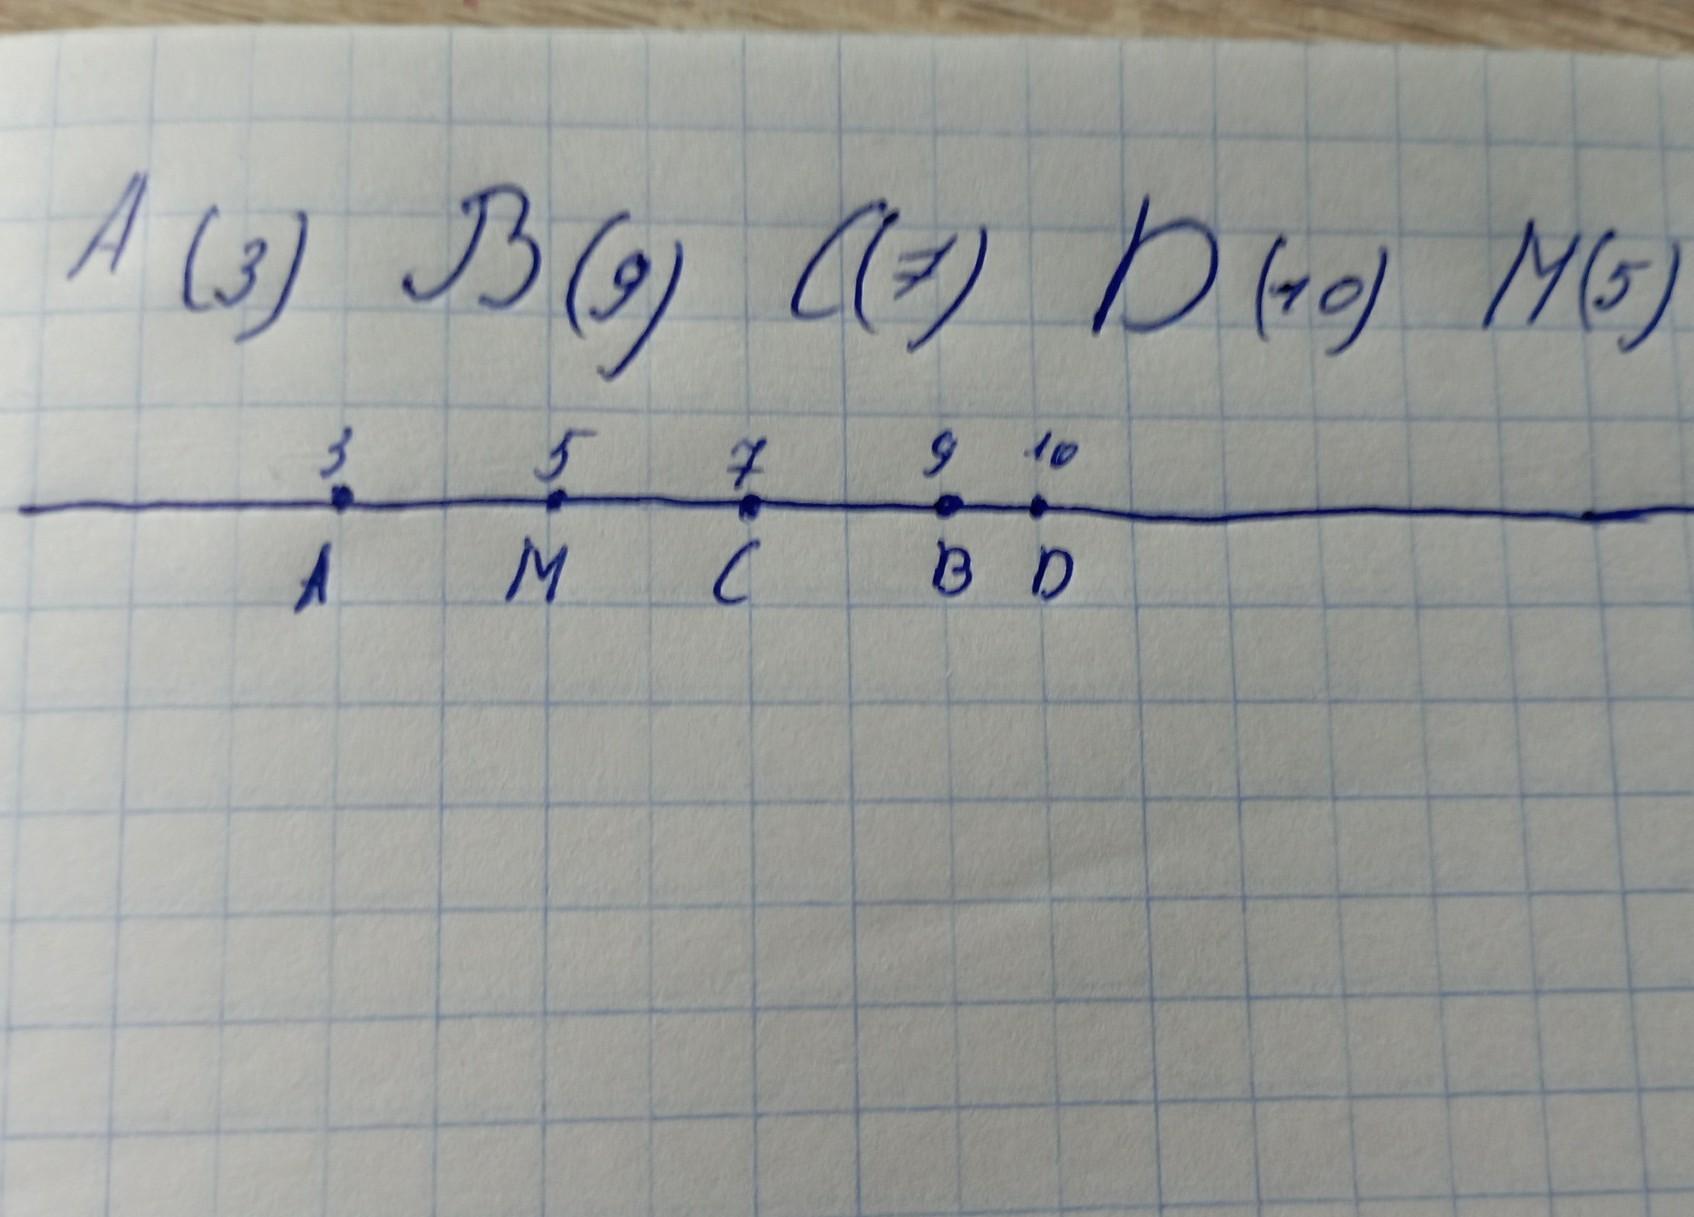 A (3) B (9) C (7) D (10) M (5)
3 5 7 9 10
A M C B D